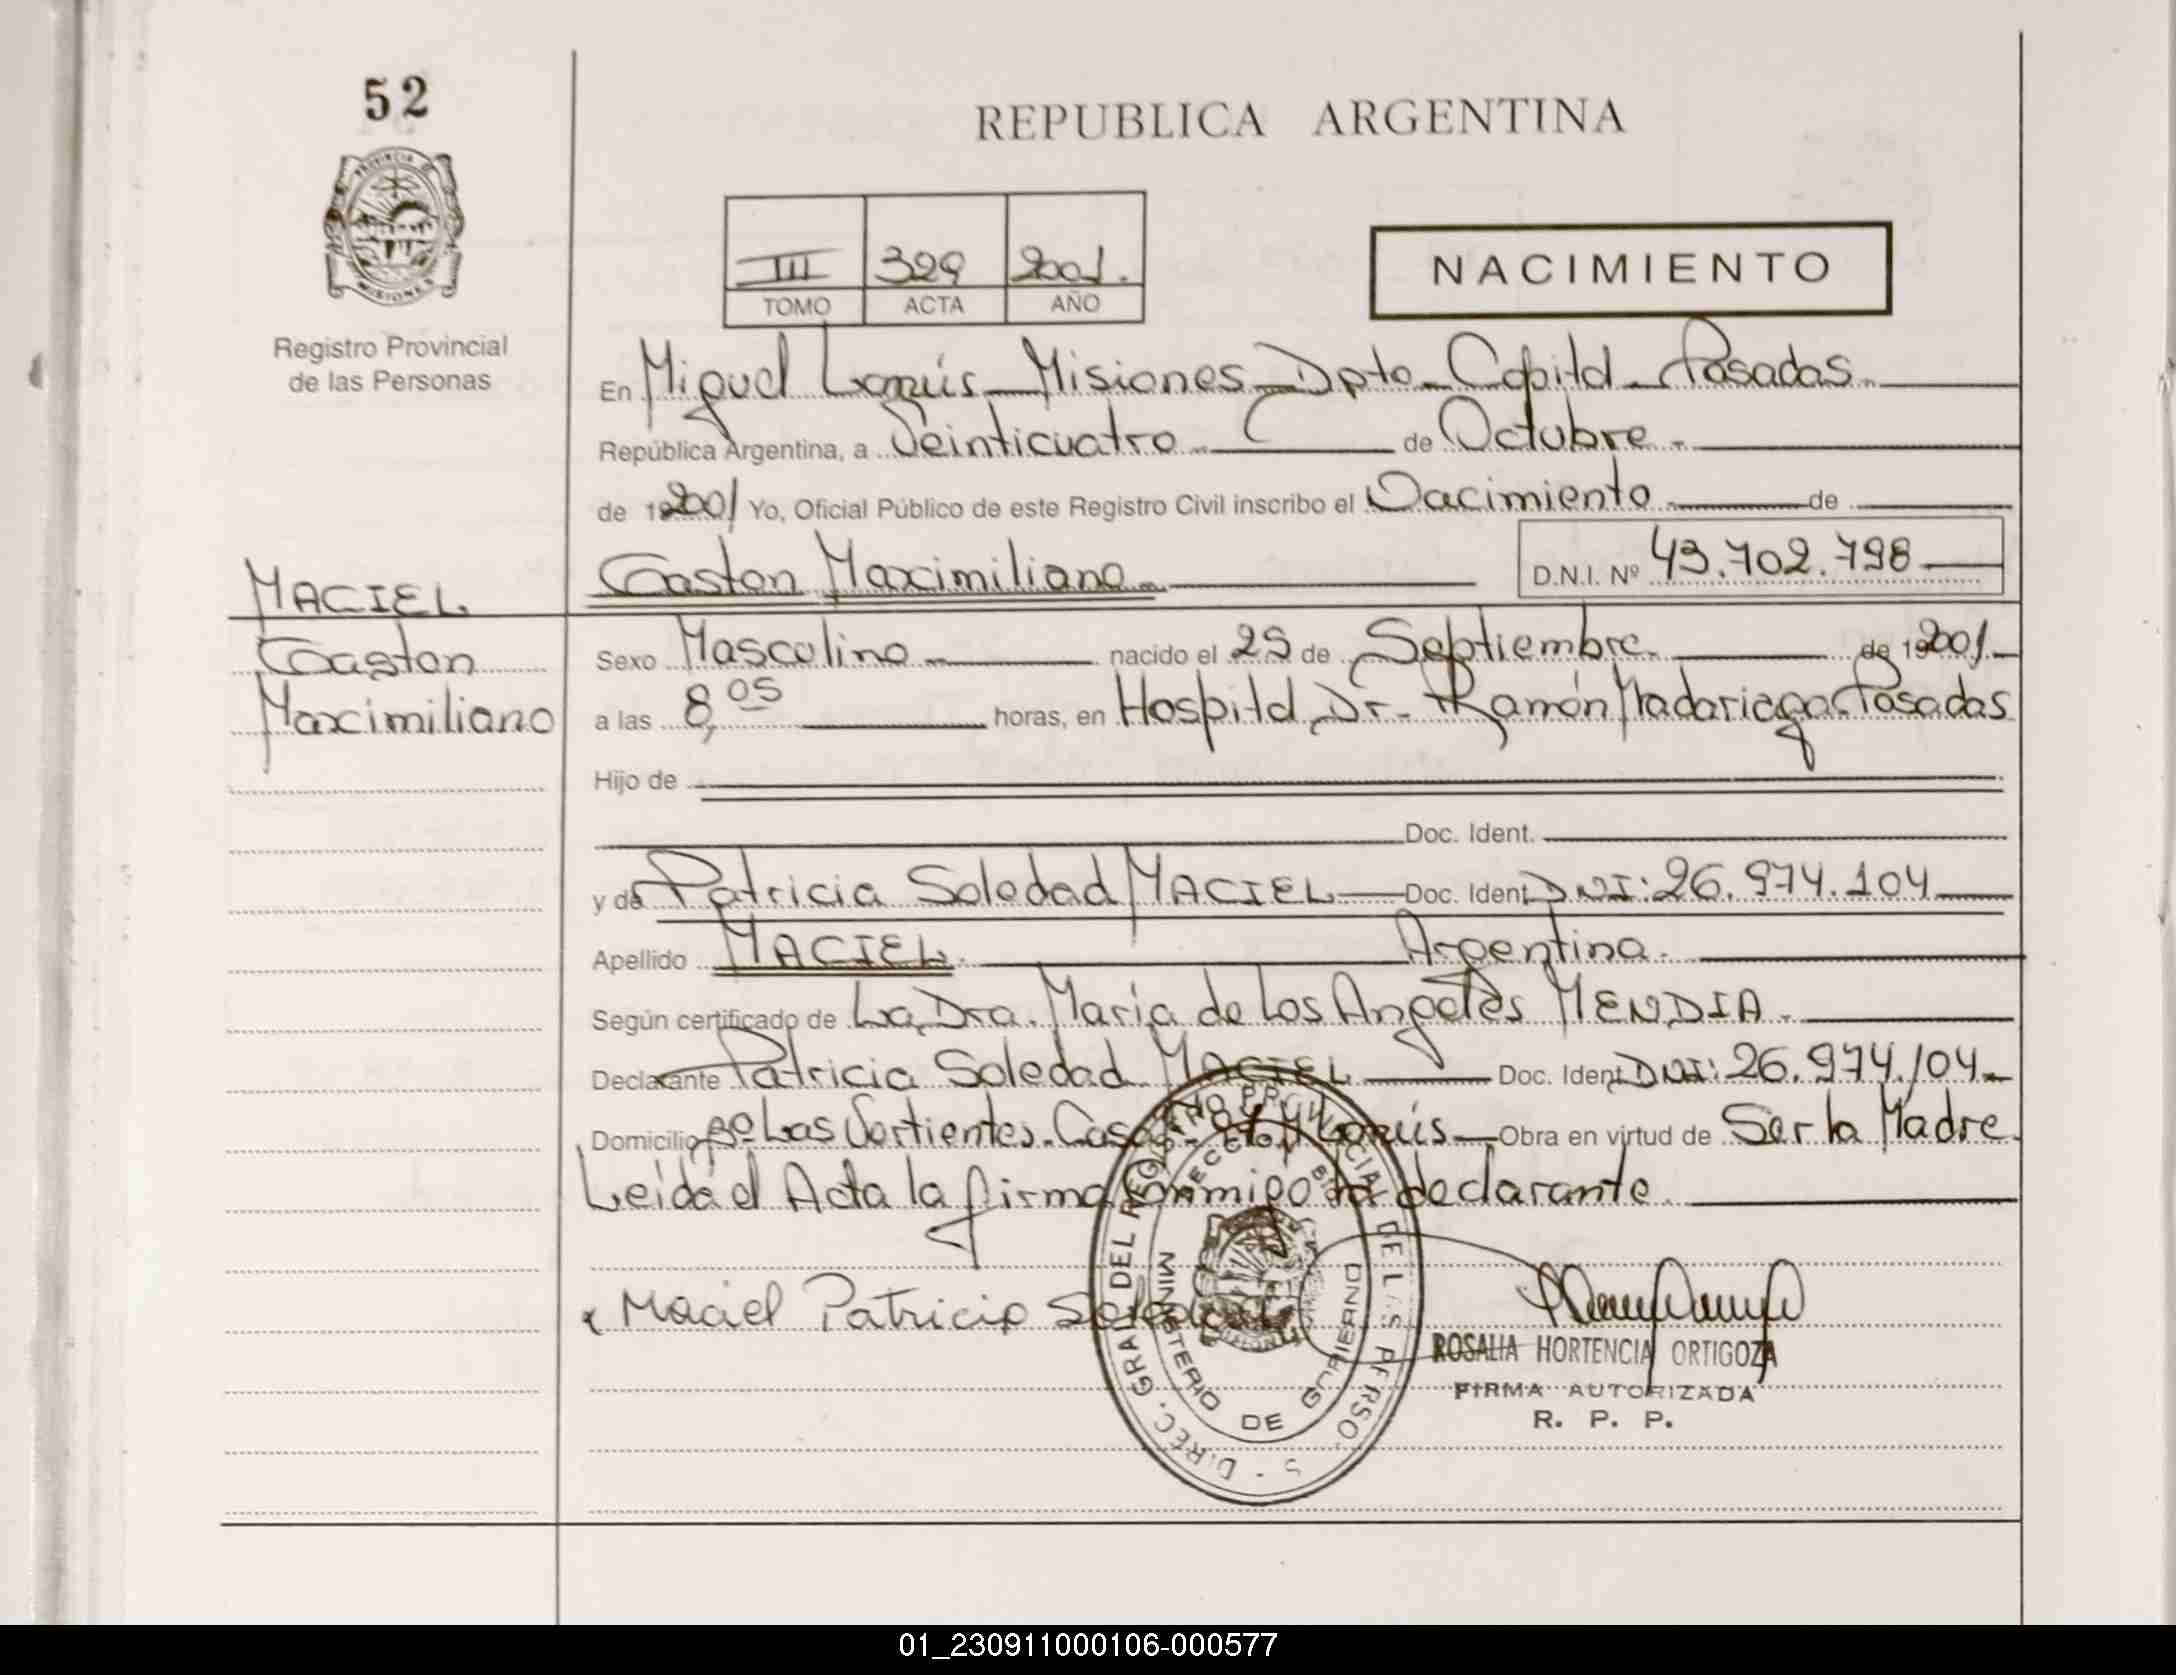 52
REPUBLICA ARGENTINA
PROVINCIA DE
MISIONES
Registro Provincial
de las Personas
III 329 2001.
TOMO ACTA AÑO
NACIMIENTO
En Miguel Lanús - Misiones - Dpto - Capital - Posadas.
República Argentina, a Veinticuatro de Octubre.
de 2001 Yo, Oficial Público de este Registro Civil inscribo el Nacimiento de
Gaston Maximiliano D.N.I. Nº 43.702.798
MACIEL.
Gaston
Maximiliano
Sexo Masculino nacido el 25 de Septiembre de 2001
a las 8,05 horas, en Hospital Dr. Ramón Madariaga Posadas
Hijo de
Doc. Ident.
y de Patricia Soledad MACIEL Doc. Ident DNI: 26.974.104
Apellido MACIEL. Argentina.
Según certificado de La Dra. María de Los Angeles MENDIA.
Declarante Patricia Soledad MACIEL Doc. Ident DNI: 26.974.104
Domicilio Bº Las Vertientes. Casa M. Lanús Obra en virtud de Ser la Madre
Leida el Acta la firma conmigo la declarante
Maciel Patricia Soledad
DIREC. GRAL. DEL REGISTRO PROVINCIAL DE LAS PERSONAS
MINISTERIO DE GOBIERNO
ROSALIA HORTENCIA ORTIGOZA
FIRMA AUTORIZADA
R. P. P.
01_230911000106-000577